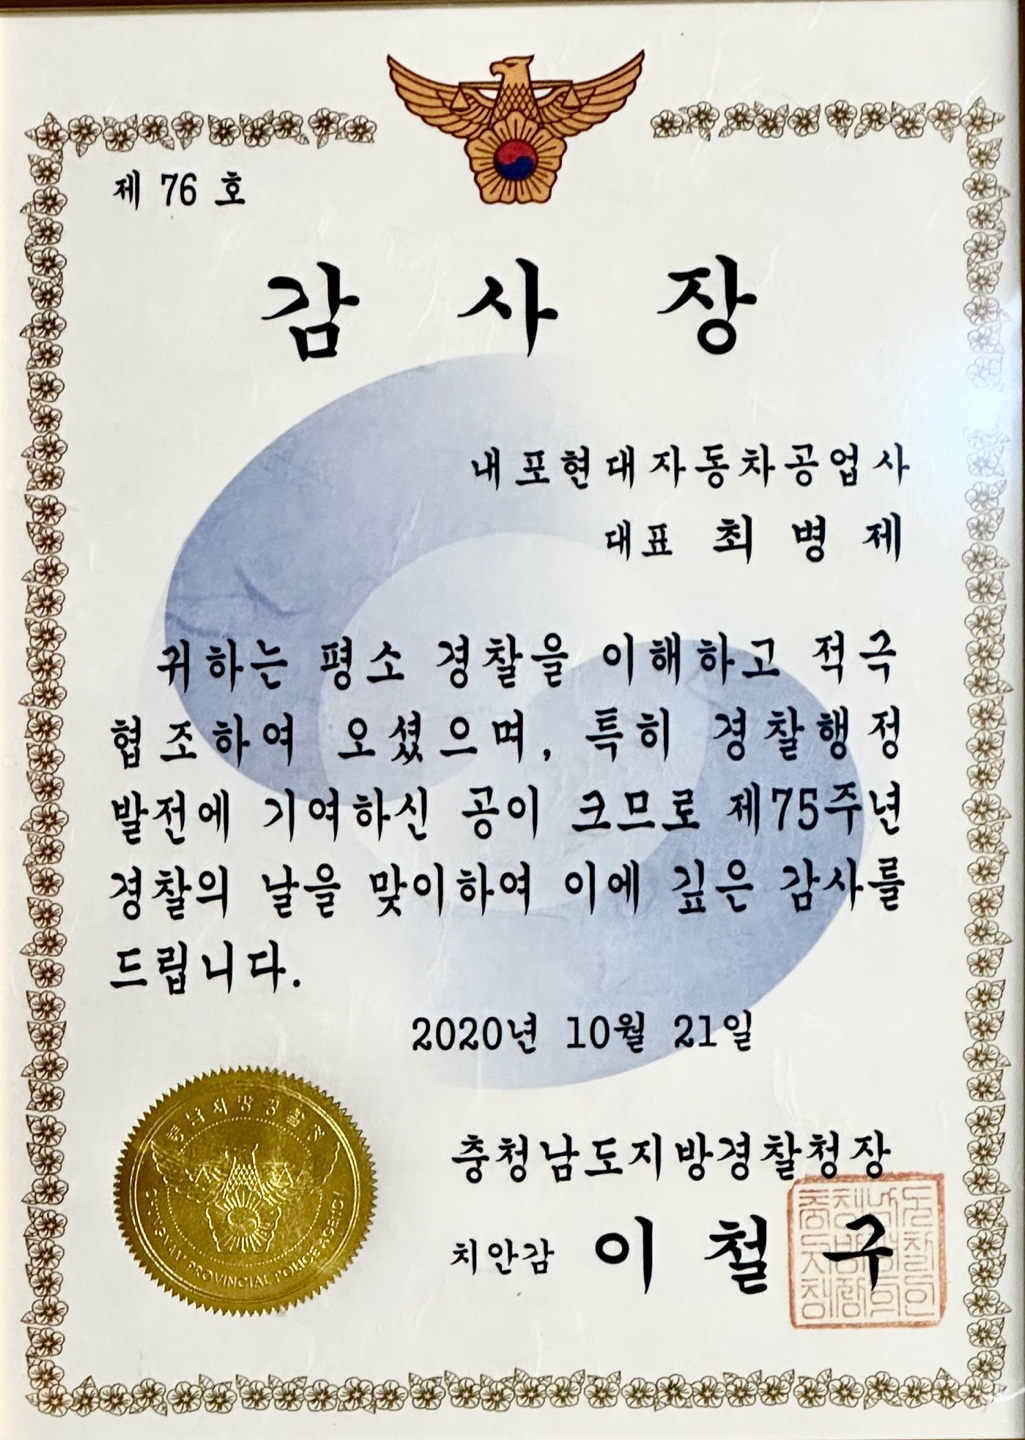 제 76 호
감 사 장
내포현대자동차공업사
대표 최 병 제
귀하는 평소 경찰을 이해하고 적극
협조하여 오셨으며, 특히 경찰행정
발전에 기여하신 공이 크므로 제75주년
경찰의 날을 맞이하여 이에 깊은 감사를
드립니다.
2020년 10월 21일
충청남도지방경찰청장
치안감 이 철 구
PROVINCIAL POLICE AGENCY